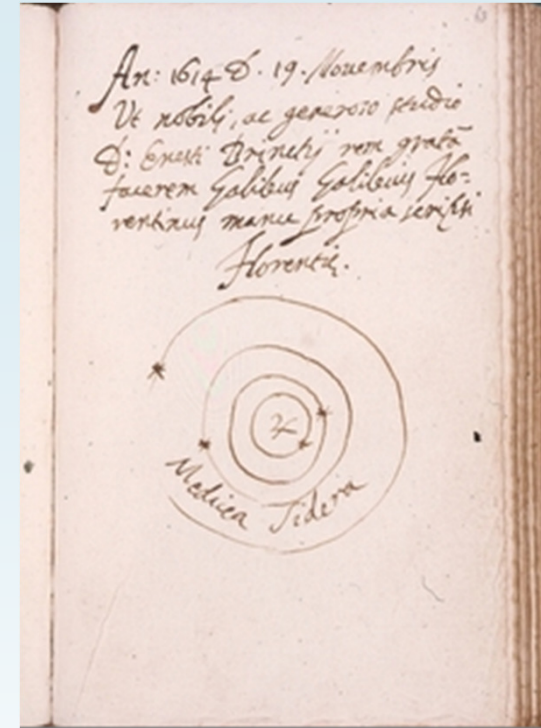 An: 1614 D. 19. Nouembris
Ut nobili, ac generoso studio
D: Ernesti Brinckij rem gratã
facerem Galileus Galileus Flo-
rentinus manu propria scripsi
Florentię.
♃
Medicea Sidera